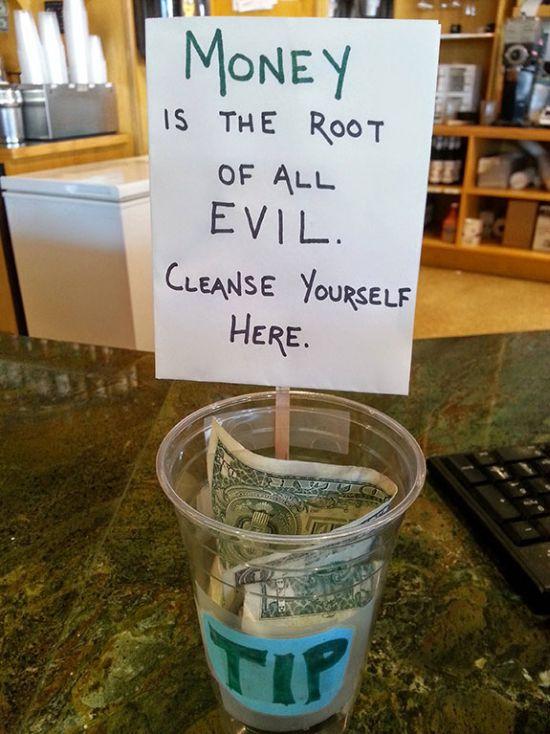 MONEY
IS THE ROOT
OF ALL
EVIL.
CLEANSE YOURSELF
HERE.
TIP